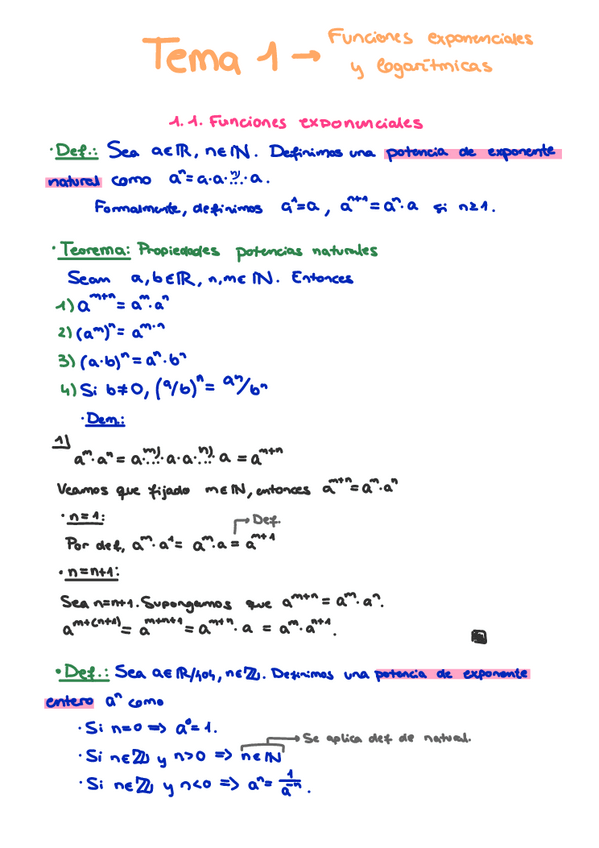 Tema 1 → Funciones exponenciales
y logarítmicas
1.1. Funciones exponenciales
· Def.: Sea a∈ℝ, n∈ℕ. Definimos una potencia de exponente
natural como aⁿ = a·a·.ⁿ⁾.·a.
Formalmente, definimos a¹=a, aⁿ⁺¹=aⁿ·a si n≥1.
· Teorema: Propiedades potencias naturales
Sean a, b∈ℝ, n,m∈ℕ. Entonces
1) aᵐ⁺ⁿ = aᵐ·aⁿ
2) (aᵐ)ⁿ = aᵐ·ⁿ
3) (a·b)ⁿ = aⁿ·bⁿ
4) Si b≠0, (a/b)ⁿ = aⁿ/bⁿ
· Dem.:
1)
aᵐ·aⁿ = a·.ᵐ⁾.·a·a·.ⁿ⁾.·a = aᵐ⁺ⁿ
Veamos que fijado m∈ℕ, entonces aᵐ⁺ⁿ = aᵐ·aⁿ
· n=1: → Def.
Por def, aᵐ·a¹ = aᵐ·a = aᵐ⁺¹
· n=n+1:
Sea n=n+1. Supongamos que aᵐ⁺ⁿ = aᵐ·aⁿ.
aᵐ⁺⁽ⁿ⁺¹⁾ = aᵐ⁺ⁿ⁺¹ = aᵐ⁺ⁿ·a = aᵐ·aⁿ⁺¹.
· Def.: Sea a∈ℝ/{0}, n∈ℤ. Definimos una potencia de exponente
entero aⁿ como
· Si n=0 => a⁰=1.
· Si n∈ℤ y n>0 => n∈ℕ → Se aplica def de natural.
· Si n∈ℤ y n<0 => aⁿ = 1/a⁻ⁿ.